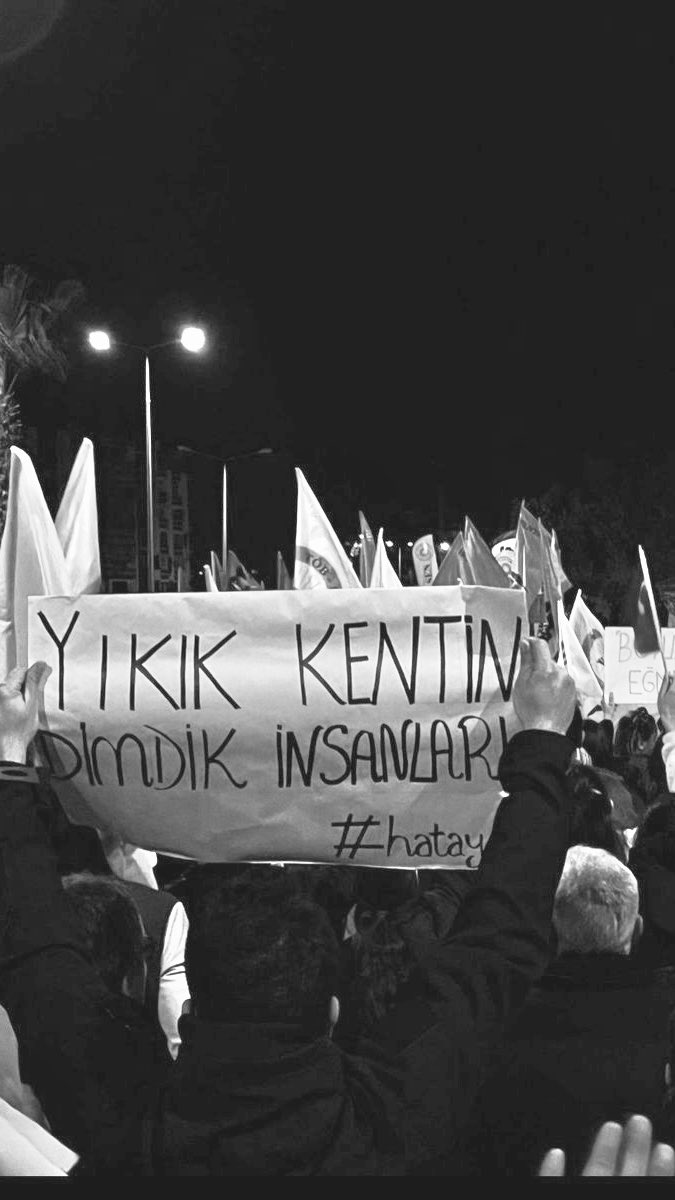 YIKIK KENTİN
DİMDİK İNSANLARI
#hatay